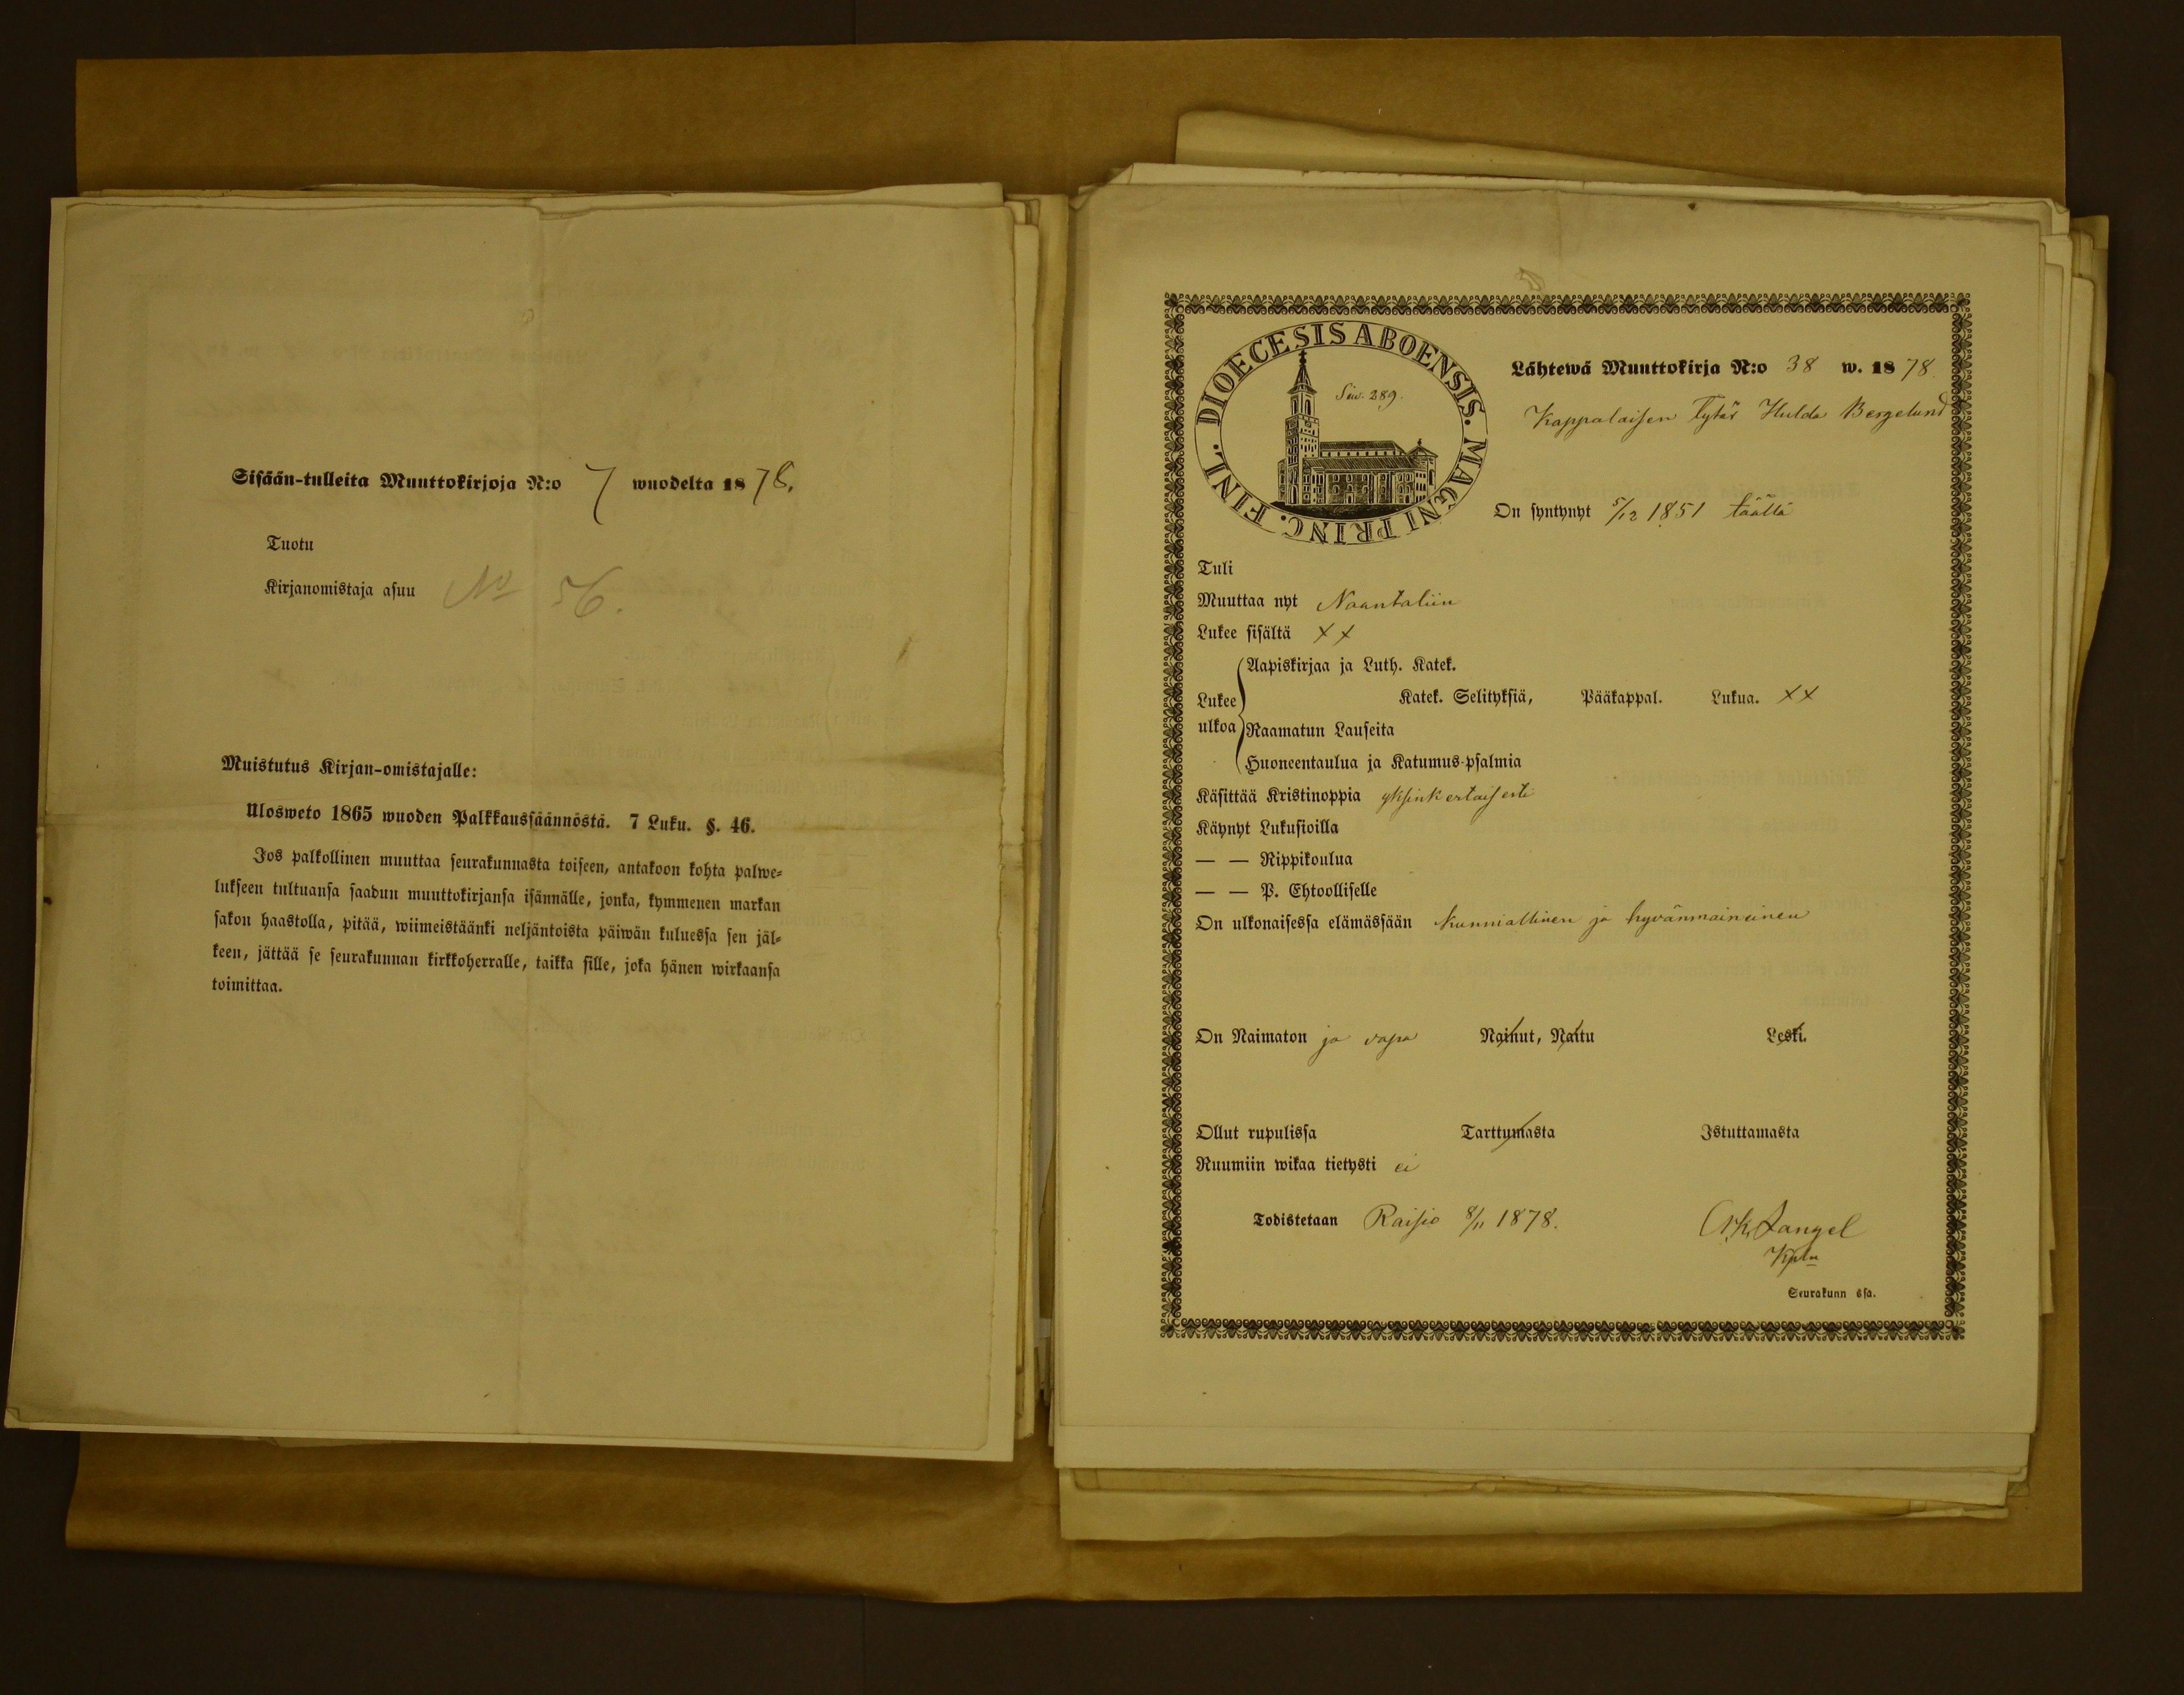 Sisään-tulleita Muuttokirjoja N:o 7 wuodelta 1878.
Tuotu
Kirjanomistaja asuu No 56.
Muistutus Kirjan-omistajalle:
Ulosweto 1865 wuoden Palkkaussäännöstä. 7 Luku. §. 46.
Jos palkollinen muuttaa seurakunnasta toiseen, antakoon kohta palwe-
lukseen tultuansa saadun muuttokirjansa isännälle, jonka, kymmenen markan
sakon haastolla, pitää, wiimeistäänki neljäntoista päiwän kuluessa sen jäl-
keen, jättää se seurakunnan kirkkoherralle, taikka sille, joka hänen wirkaansa
toimittaa.
DIOECESIS ABOENSIS. MAGNI PRINC. FINL.
Siw. 289.
Lähtewä Muuttokirja N:o 38 w. 1878.
Kappalaisen Tytär Hulda Bergelund
On syntynyt 5/12 1851 täällä
Tuli
Muuttaa nyt Naantaliin
Lukee sisältä ××
Lukee ulkoa
Aapiskirjaa ja Luth. Katek.
Katek. Selityksiä, Pääkappal. Lukua. ××
Raamatun Lauseita
Huoneentaulua ja Katumus-psalmia
Käsittää Kristinoppia yksinkertaisesti
Käynyt Lukusioilla
— — Rippikoulua
— — P. Ehtoolliselle
On ulkonaisessa elämässään kunniallinen ja hyvänmaineinen
On Naimaton ja vapa Nainut, Naitu Leski.
Ollut rupulissa Tarttumasta Istuttamasta
Ruumiin wikaa tietysti ei
Todistetaan Raisio 8/11 1878.
Kpln
Seurakunn ssa.